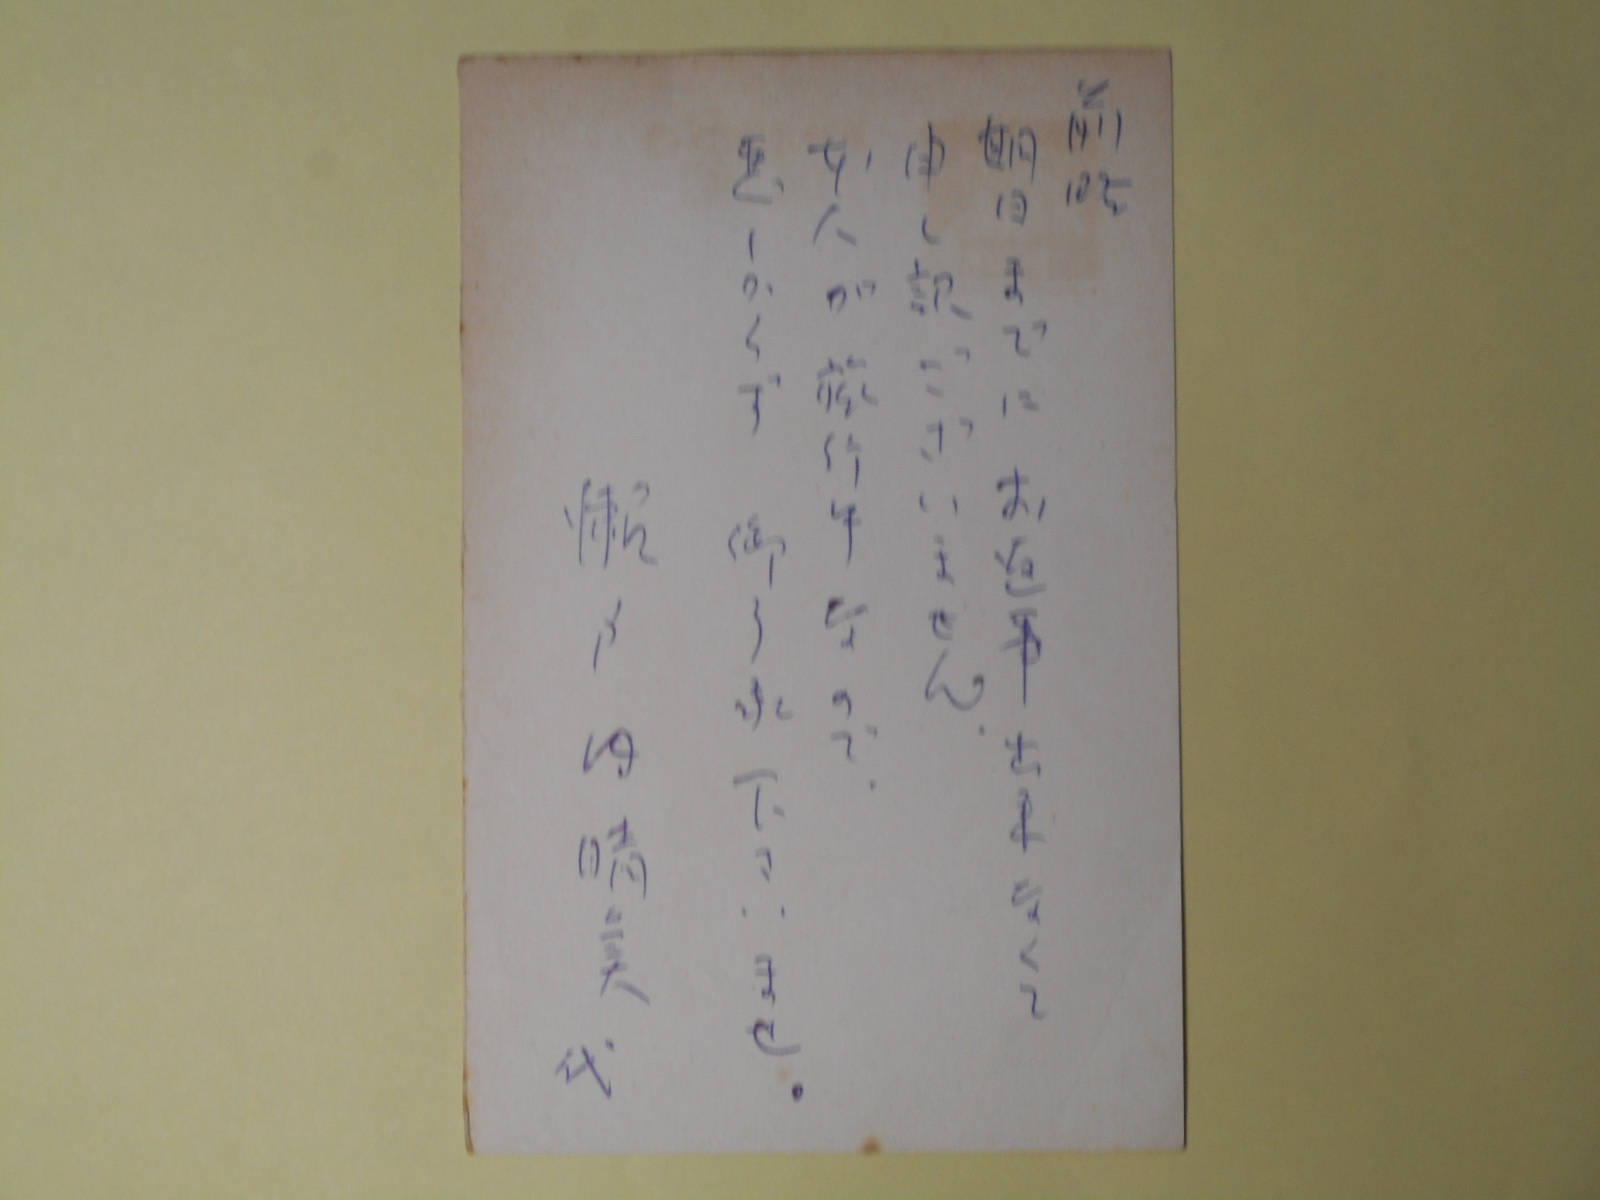 前略
期日までにお返事出来なくて
申し訳ございません。
主人が旅行中なので、
悪しからず 御了承下さいませ。
瀬戸内晴美
代